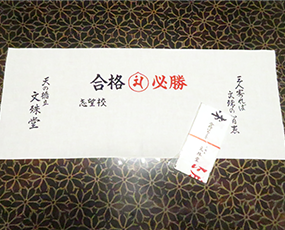 三人寄れば
文殊の智恵
合格 必勝
志望校
天の橋立
文殊堂